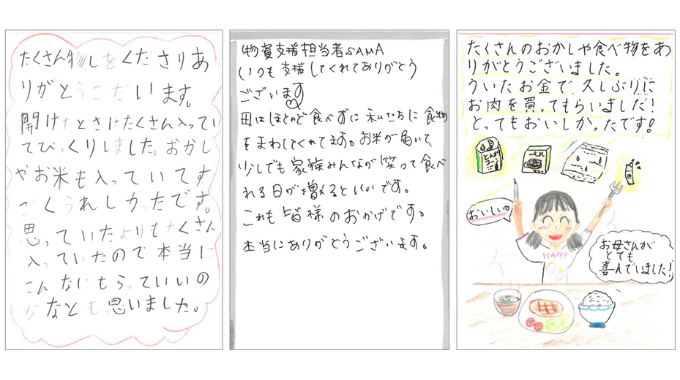 たくさん物しをくださりあ
りがとうございます。
開けたときはたくさん入ってい
てびっくりしました。おかし
やお米も入っていてす
ごくうれしかったです。
思っていたよりもたくさん
入っていたので本当に
こんなにもらっていいの
かなとも思いました。
物資支援担当者SAMA
いつも支援してくれてありがとう
ございます
母はほとんど食べずに私たちに食物
をまわしてくれてます。お米が届いて
少しでも家族みんなが笑って食べ
れる日が増えるといいです。
これも皆様のおかげです。
本当にありがとうございます。
たくさんのおかしや食べ物をあ
りがとうございました。
ういたお金で、久しぶりに
お肉を買ってもらいました!
とってもおいしかったです!
おいしいね
HAPPY
お母さんが
とても
喜んでいました!